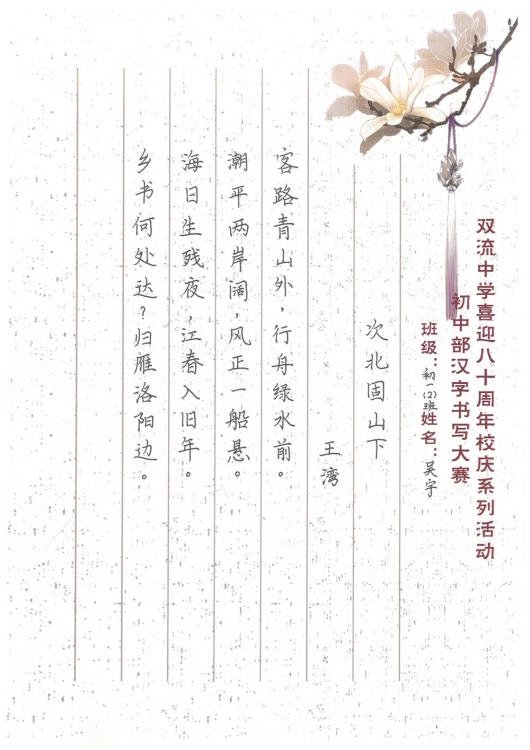 双流中学喜迎八十周年校庆系列活动
初中部汉字书写大赛
班级：初一(2)班姓名：吴宇
次北固山下
王湾
客路青山外，行舟绿水前。
潮平两岸阔，风正一船悬。
海日生残夜，江春入旧年。
乡书何处达？归雁洛阳边。